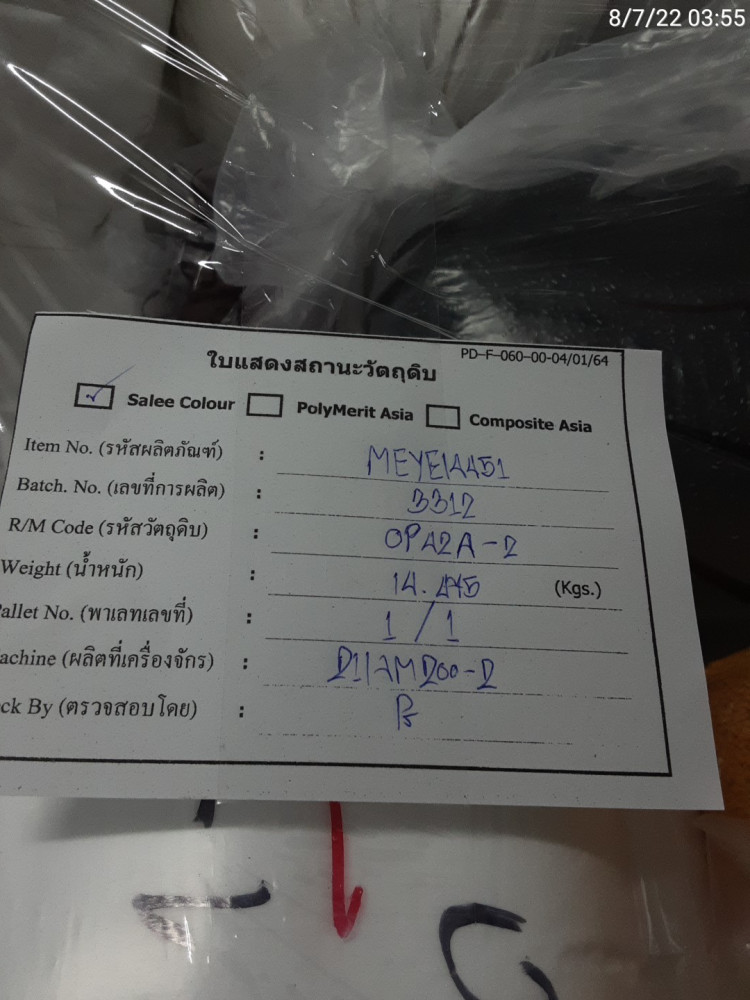 8/7/22 03:55
PD-F-060-00-04/01/64
ใบแสดงสถานะวัตถุดิบ
Salee Colour PolyMerit Asia Composite Asia
Item No. (รหัสผลิตภัณฑ์) : MEYE14451
Batch. No. (เลขที่การผลิต) : 3312
R/M Code (รหัสวัตถุดิบ) : OPA2A-2
Weight (น้ำหนัก) : 14.445 (Kgs.)
allet No. (พาเลทเลขที่) : 1/1
achine (ผลิตที่เครื่องจักร) :
ck By (ตรวจสอบโดย) :